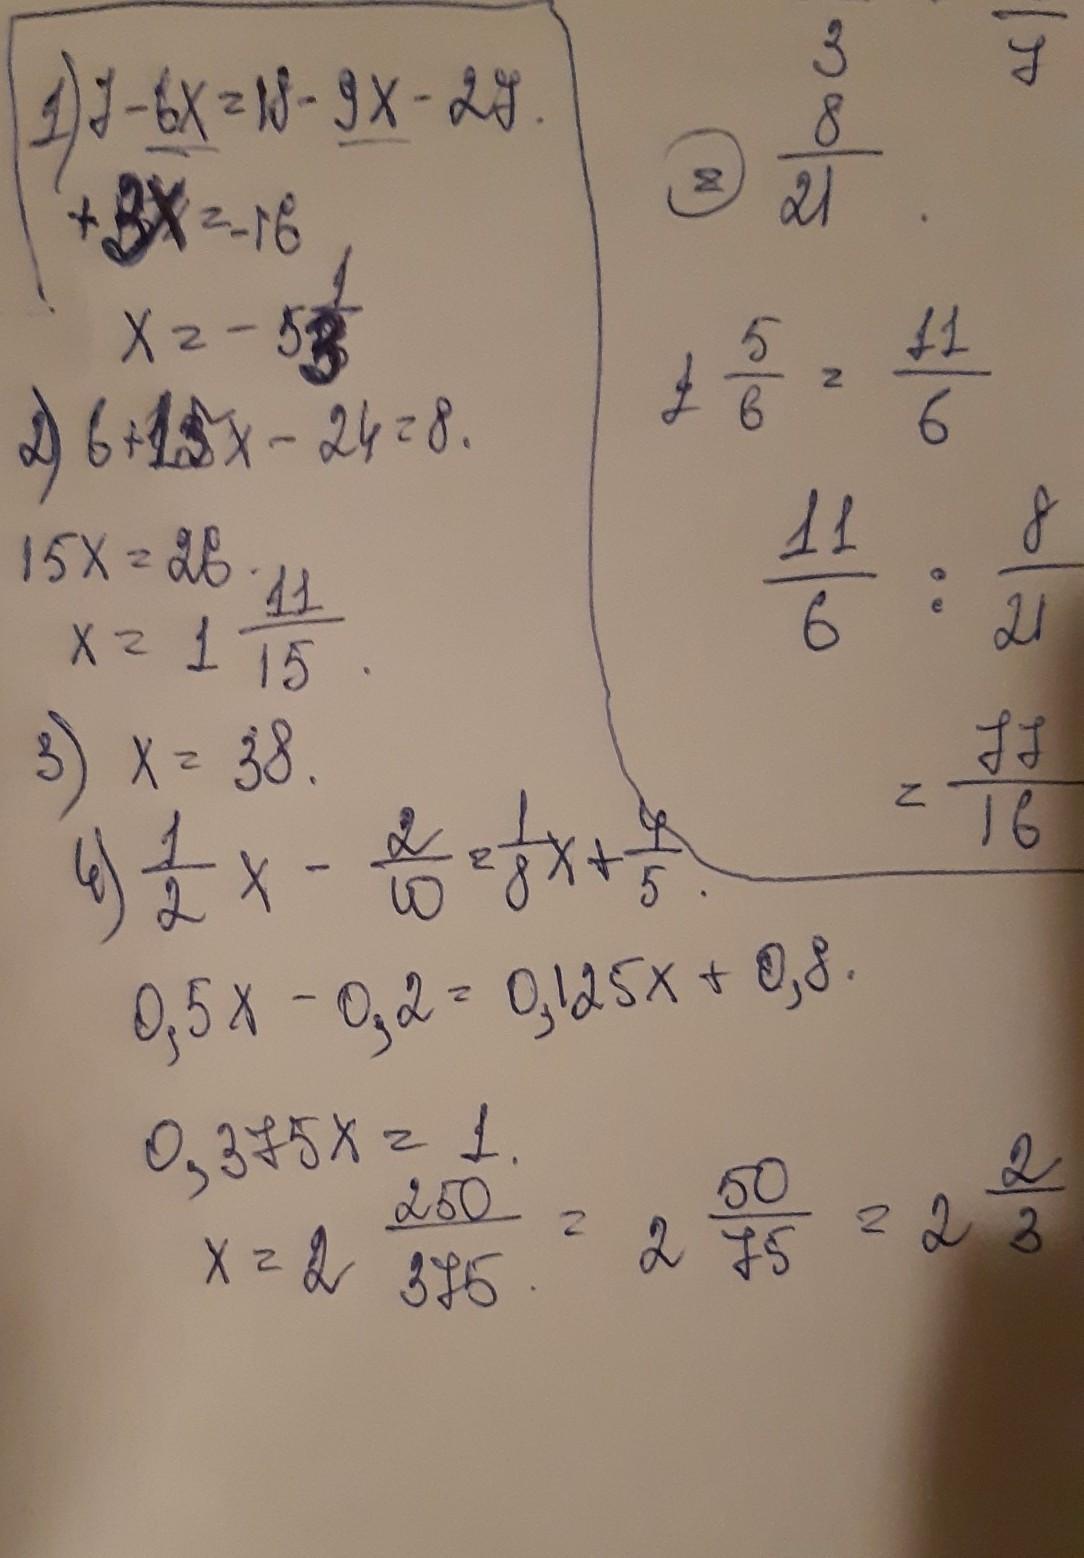 1) 7 - 6x = 18 - 9x - 27.
+ 3x = -16
x = - 5 1/3
2) 6 + 15x - 24 = 8.
15x = 26.
x = 1 11/15.
3) x = 38.
4) 1/2 x - 2/10 = 1/8 x + 4/5.
0,5x - 0,2 = 0,125x + 0,8.
0,375x = 1.
x = 2 250/375. = 2 50/75 = 2 2/3
3 7
= 8/21.
1 5/6 = 11/6
11/6 : 8/21
= 77/16